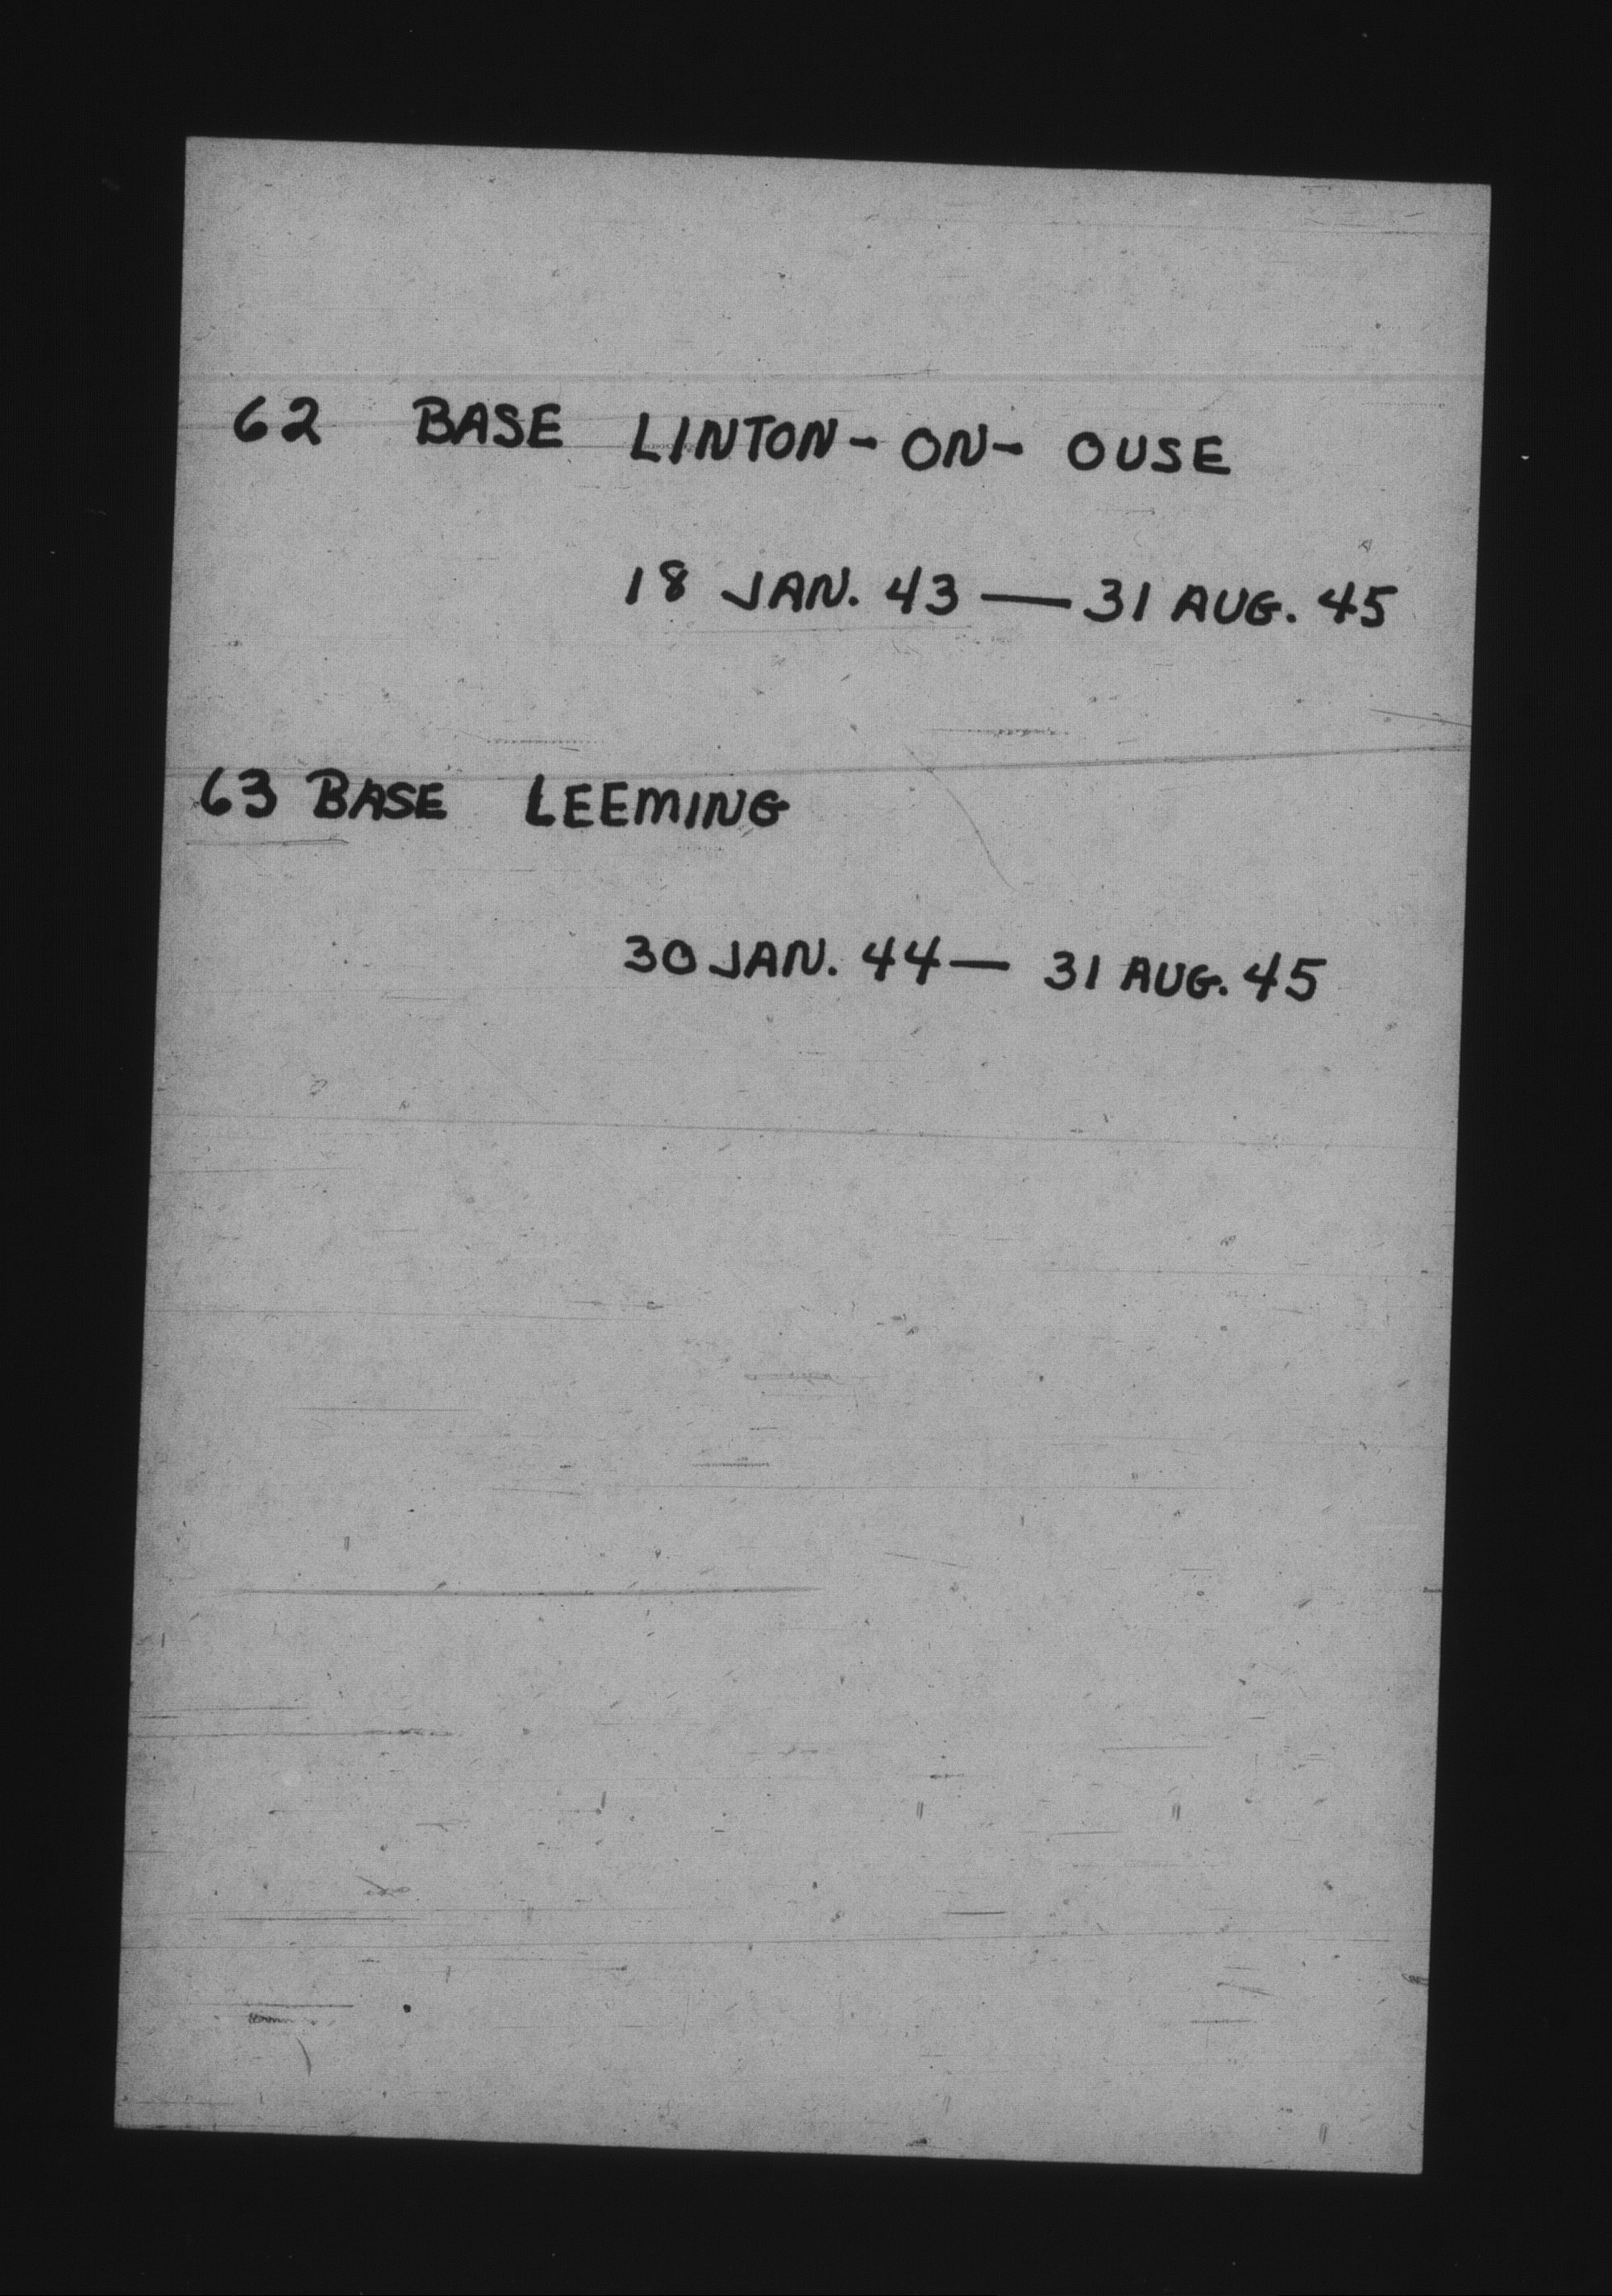 62 BASE LINTON-ON-OUSE
18 JAN. 43 — 31 AUG. 45
63 BASE LEEMING
30 JAN. 44 — 31 AUG. 45